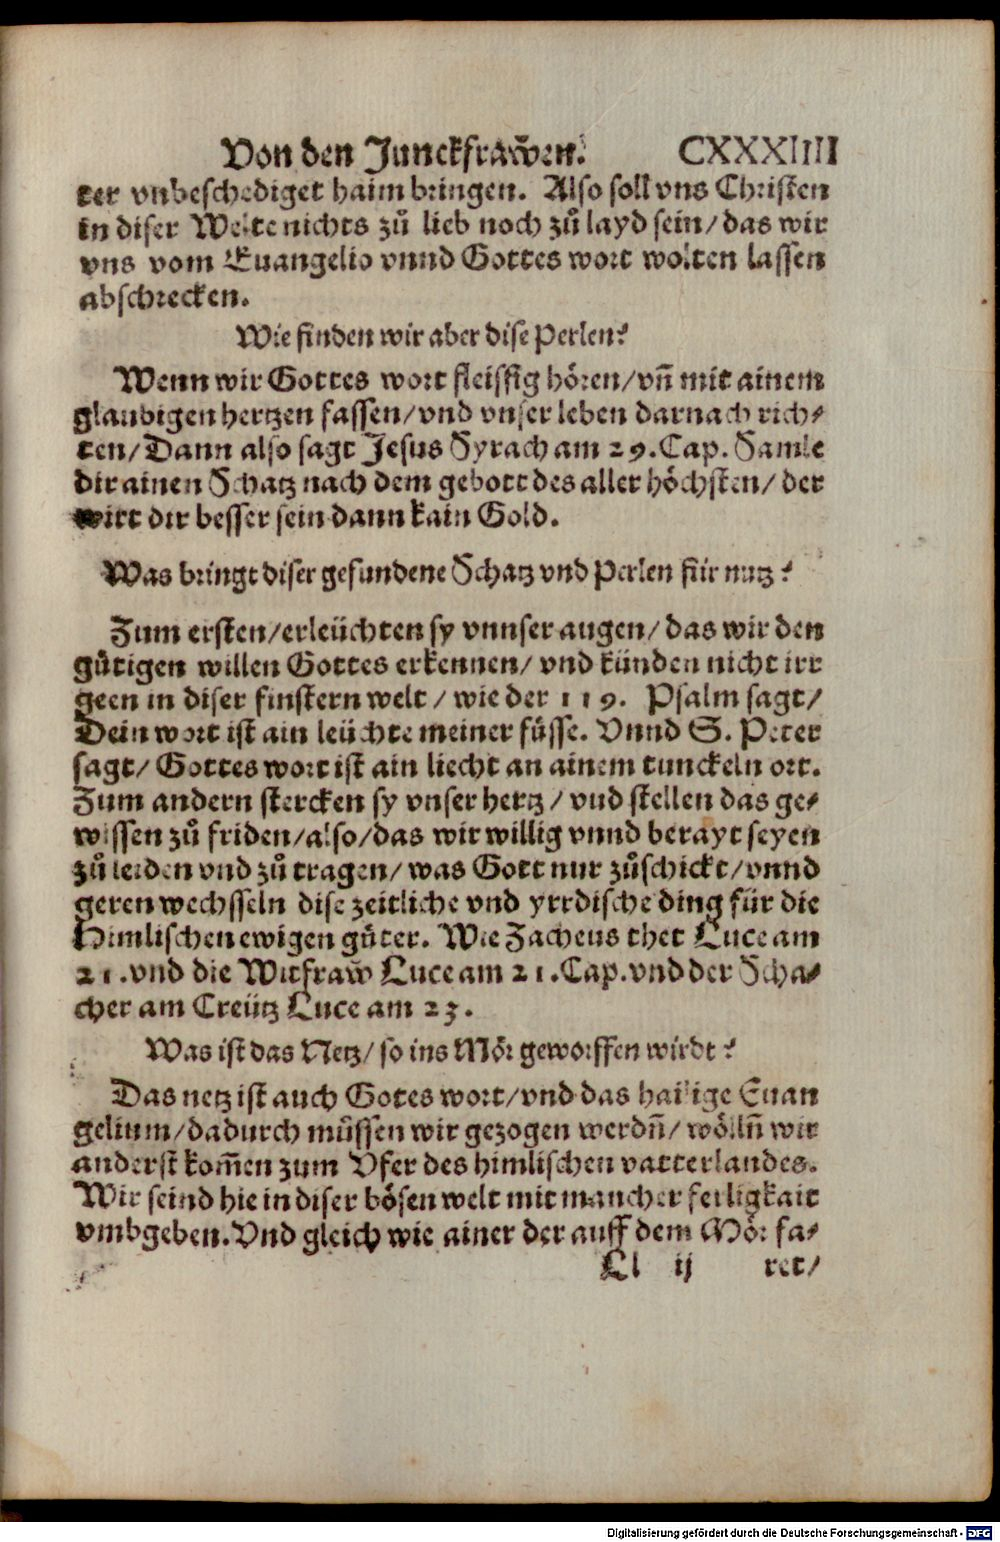 Von den Junckfraw̃en. CXXXIIII
ter vnbeschediget haim bringen. Also soll vns Christen
in diser Welte nichts zů lieb noch zů layd sein/ das wir
vns vom Euangelio vnnd Gottes wort wolten lassen
abschrecken.
Wie finden wir aber dise Perlen?
Wenn wir Gottes wort fleissig hören/ vñ mit ainem
glaubigen hertzen fassen/ vnd vnser leben darnach rich⸗
ten/ Dann also sagt Jesus Syrach am 29. Cap. Samle
dir ainen Schatz nach dem gebott des aller höchsten/ der
wirt dir besser sein dann kain Gold.
Was bringt diser gefundene Schatz vnd Perlen für nutz?
Zum ersten/ erleüchten sy vnnser augen/ das wir den
gůtigen willen Gottes erkennen/ vnd künden nicht irr
geen in diser finstern welt/ wie der 119. Psalm sagt/
Dein wort ist ain leüchte meiner füsse. Vnnd S. Peter
sagt/ Gottes wort ist ain liecht an ainem tunckeln ort.
Zum andern stercken sy vnser hertz/ vnd stellen das ge⸗
wissen zů friden/ also/ das wir willig vnnd berayt seyen
zů leiden vnd zů tragen/ was Gott nur zůschickt/ vnnd
geren wechsseln dise zeitliche vnd yrrdische ding für die
Himlischen ewigen gůter. Wie Zacheus thet Luce am
21. vnd die Witfraw̃ Luce am 21. Cap. vnd der Scha⸗
cher am Creütz Luce am 23.
Was ist das Netz/ so ins Mör geworffen wirdt?
Das netz ist auch Gotes wort/ vnd das hailige Euan
gelium/ dadurch müssen wir gezogen werdñ/ wöllñ wir
anderst kom̃en zum Vfer des himlischen vatterlandes.
Wir seind hie in diser bösen welt mit mancher ferligkait
vmbgeben. Vnd gleich wie ainer der auff dem Mör fa⸗
Ll ij ret/
Digitalisierung gefördert durch die Deutsche Forschungsgemeinschaft - DFG